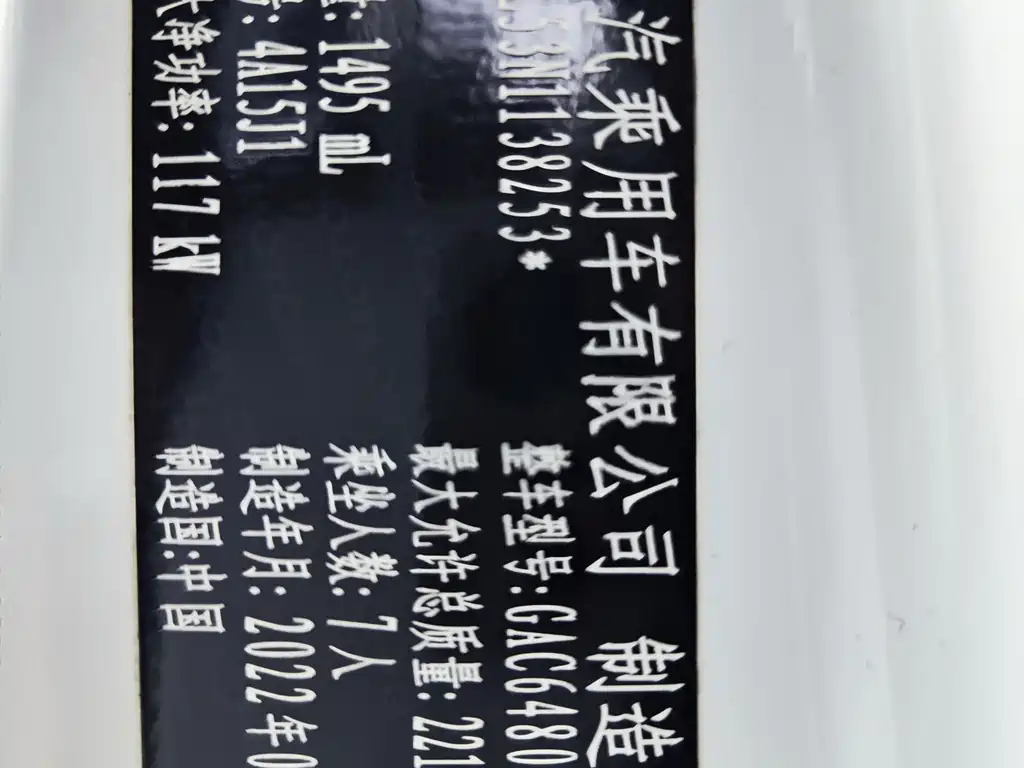 汽乘用车有限公司 制造
253N1138253*
整车型号:GAC6480
最大允许总质量:221
: 1495 mL
乘坐人数: 7人
: 4A15J1
制造年月: 2022年0
净功率: 117 kW
制造国:中国